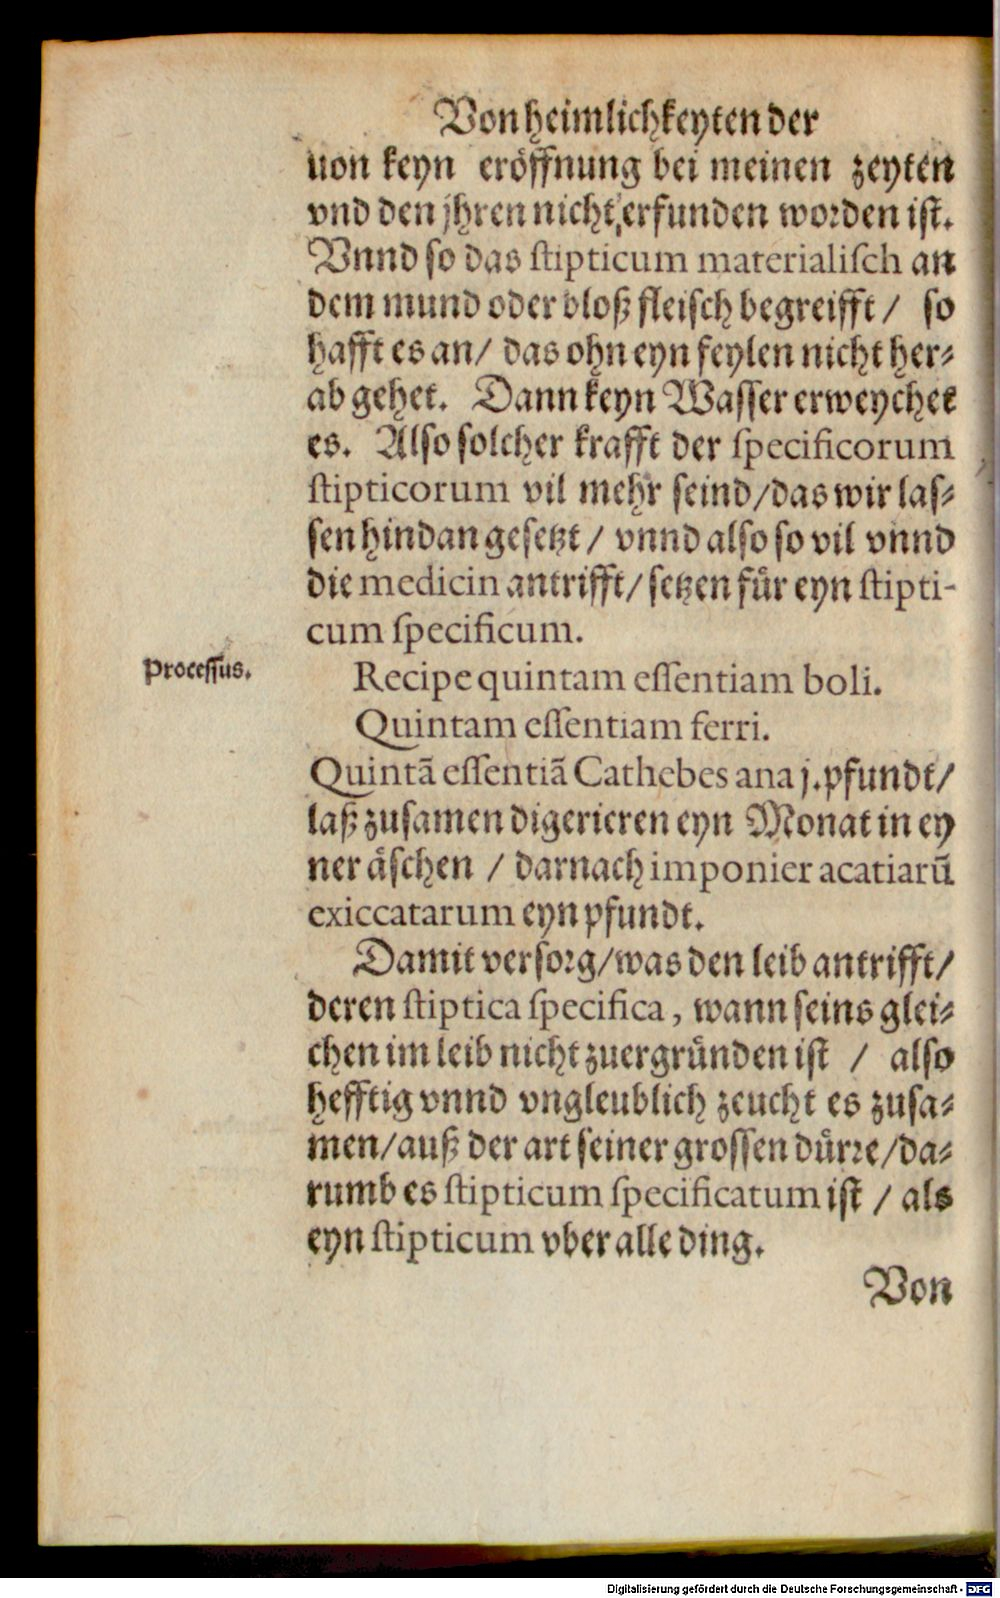 Von heimlichkeyten der
uon keyn eröffnung bei meinen zeyten
vnd den jhren nicht erfunden worden ist.
Vnnd so das ſtipticum materialiſch an
dem mund oder bloß fleisch begreifft / so
hafft es an / das ohn eyn feylen nicht her⸗
ab gehet. Dann keyn Wasser erweychet
es. Also solcher krafft der ſpecificorum
ſtipticorum vil mehr seind / das wir las⸗
sen hindan gesetzt / vnnd also so vil vnnd
die medicin antrifft / setzen fuͤr eyn ſtipti-
cum ſpecificum.
Processus.
Recipe quintam eſſentiam boli.
Quintam eſſentiam ferri.
Quintā eſſentiā Cathebes ana j. pfundt /
laß zusamen digerieren eyn Monat in ey
ner aͤschen / darnach imponier acatiarū
exiccatarum eyn pfundt.
Damit versorg / was den leib antrifft /
deren ſtiptica ſpecifica, wann seins glei⸗
chen im leib nicht zuergruͤnden ist / also
hefftig vnnd vngleublich zeucht es zusa⸗
men / auß der art seiner grossen duͤrre / da⸗
rumb es ſtipticum ſpecificatum ist / als
eyn ſtipticum vber alle ding.
Von
Digitalisierung gefördert durch die Deutsche Forschungsgemeinschaft - DFG